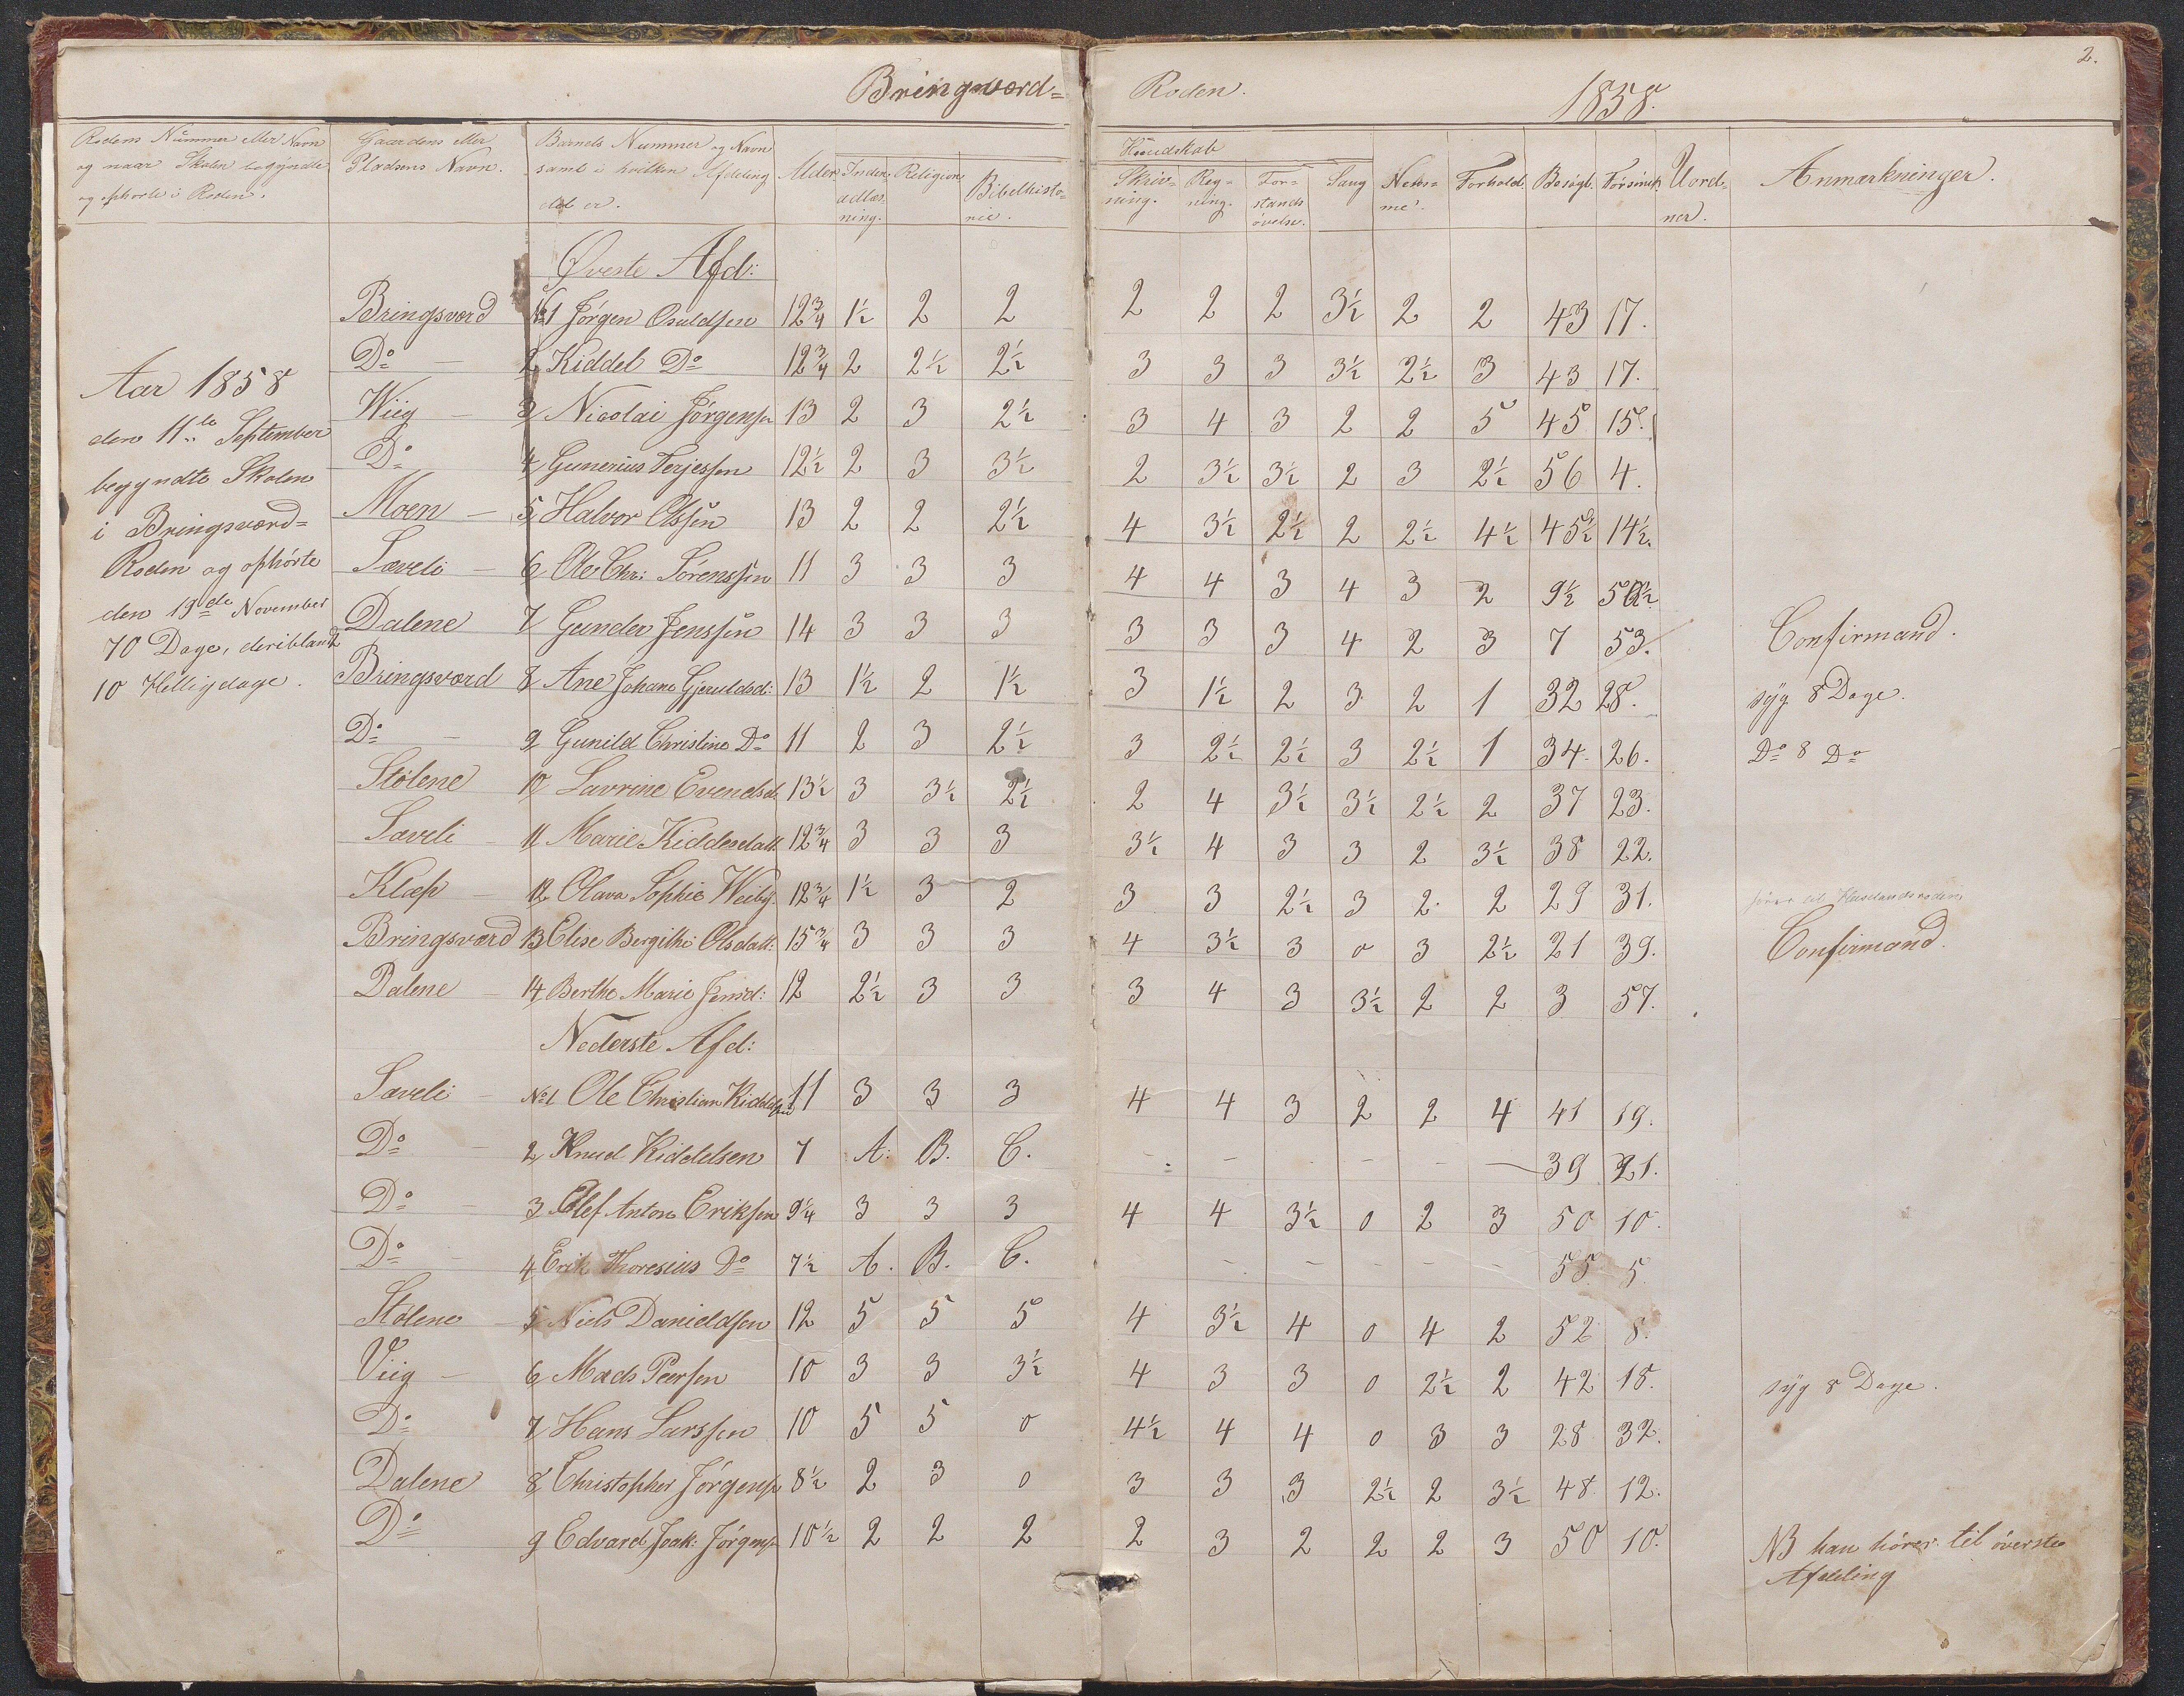 2.
Bringsværd= Roden. 1858.
Rodens Nummer eller Navn og naar Skolen begyndte og ophørte i Roden.
Gaardens eller Pladsens Navn.
Barnets Nummer og Navn samt i hvilken Afdeling det er.
Alder
Indenadlæsning.
Religion
Bibelhistorie.
Kundskab
Skrivning.
Regning.
Forstandsøvelse.
Sang
Forhold.
Besøgt.
Forsømt
Uordner.
Anmærkninger.
Aar 1858
den 11te September
begyndte Skolen
i Bringsværd=
Roden og ophørte
den 19de November
70 Dage, deriblandt
10 Helligdage.
Øverste Afd:
Bringsværd No1 Jørgen Osuldsen 12¾ 1½ 2 2 2 2 2 3½ 2 2 43 17.
Do — 2 Kiddel Do 12¾ 2 2½ 2½ 3 3 3 3½ 2½ 3 43 17.
Wiig — 3 Nicolai Jørgensen 13 2 3 2½ 3 4 3 2 2 5 45 15.
Do 4 Gunerius Terjessen 12½ 2 3 3½ 2 3½ 3½ 2 3 2½ 56 4.
Moen — 5 Halvor Olssen 13 2 2 2½ 4 3½ 2½ 2 2½ 4½ 45½ 14½.
Sæveli — 6 Ole Chr: Sørenssen 11 3 3 3 4 4 3 4 3 2 9½ 50½
Dalene 7 Gunder Jenssen 14 3 3 3 3 3 3 4 2 3 7 53. Confirmand.
Bringsværd 8 Ane Johane Gjeruldsd: 13 1½ 2 1½ 3 1½ 2 3 2 1 32 28. syg 8 Dage.
Do — 9 Gunild Christine Do 11 2 3 2½ 3 2½ 2½ 3 2½ 1 34. 26. Do 8 Do
Stølene 10 Lavrine Evendsd. 13½ 3 3½ 2½ 2 4 3½ 3½ 2½ 2 37 23.
Sæveli — 11 Marie Kiddelsdatt. 12¾ 3 3 3 3½ 4 3 3 2 3½ 38 22.
Klæp — 12 Olava Sophie Weiby. 12¾ 1½ 3 2 3 3 2½ 3 2 2 29 31. hører til
Bringsværd 13 Elise Bergithe Olsdatt: 15¾ 3 3 3 4 3½ 3 0 3 2½ 21 39. Confirmand.
Dalene — 14 Berthe Marie Jensd: 12 2½ 3 3 3 4 3 3½ 2 2 3 57.
Nederste Afd:
Sæveli — No1 Ole Christian Kiddelsen 11 3 3 3 4 4 3 2 2 4 41 19.
Do — 2 Knud Kiddelsen 7 A. B. C. - - - - - — 39 21.
Do — 3 Olef Anton Eriksen 9¼ 3 3 3 4 4 3½ 0 2 3 50 10.
Do — 4 Erik Thoresius Do 7½ A. B. C. - - - - - - 55 5.
Stølene — 5 Niels Danieldsen 12 5 5 5 4 3½ 4 0 4 2 52 8.
Viig — 6 Mads Peersen 10 3 3 3½ 4 3 3 0 2½ 2 42 18. syg 8 Dage.
Do 7 Hans Larssen 10 5 5 0 4½ 4 4 0 3 3 28 32.
Dalene 8 Christopher Jørgens. 8½ 2 3 0 3 3 3 2½ 2 3½ 48 12.
Do 9 Edvard Joak: Jørgens. 10½ 2 2 2 2 3 2 2 2 3 50 10. NB han hører til øverste
Afdeling